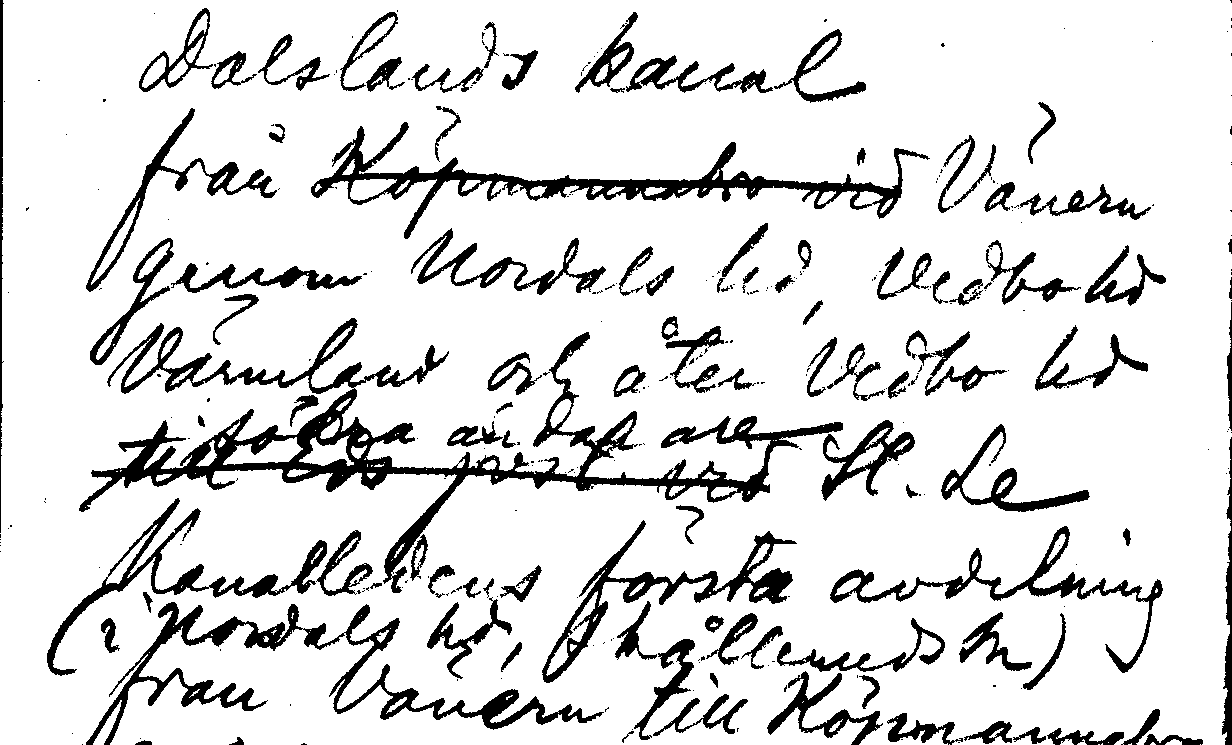 Dalslands kanal
från Köpmannabro vid Vänern
genom Nordals hd, Vedbo hd
Värmland och åter Vedbo hd
södra ändan av
till Eds vid St. Le
Kanalledens första avdelning
(i Nordals hd, Skållerud sn)
från Vänern till Köpmannabro